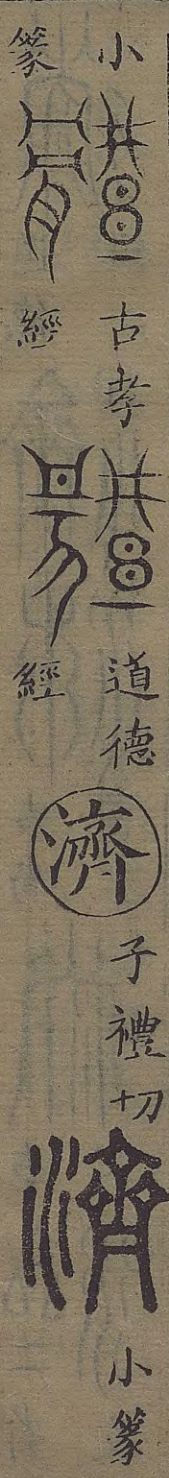 小篆 古孝經 道德經 濟 子禮切 濟 小篆